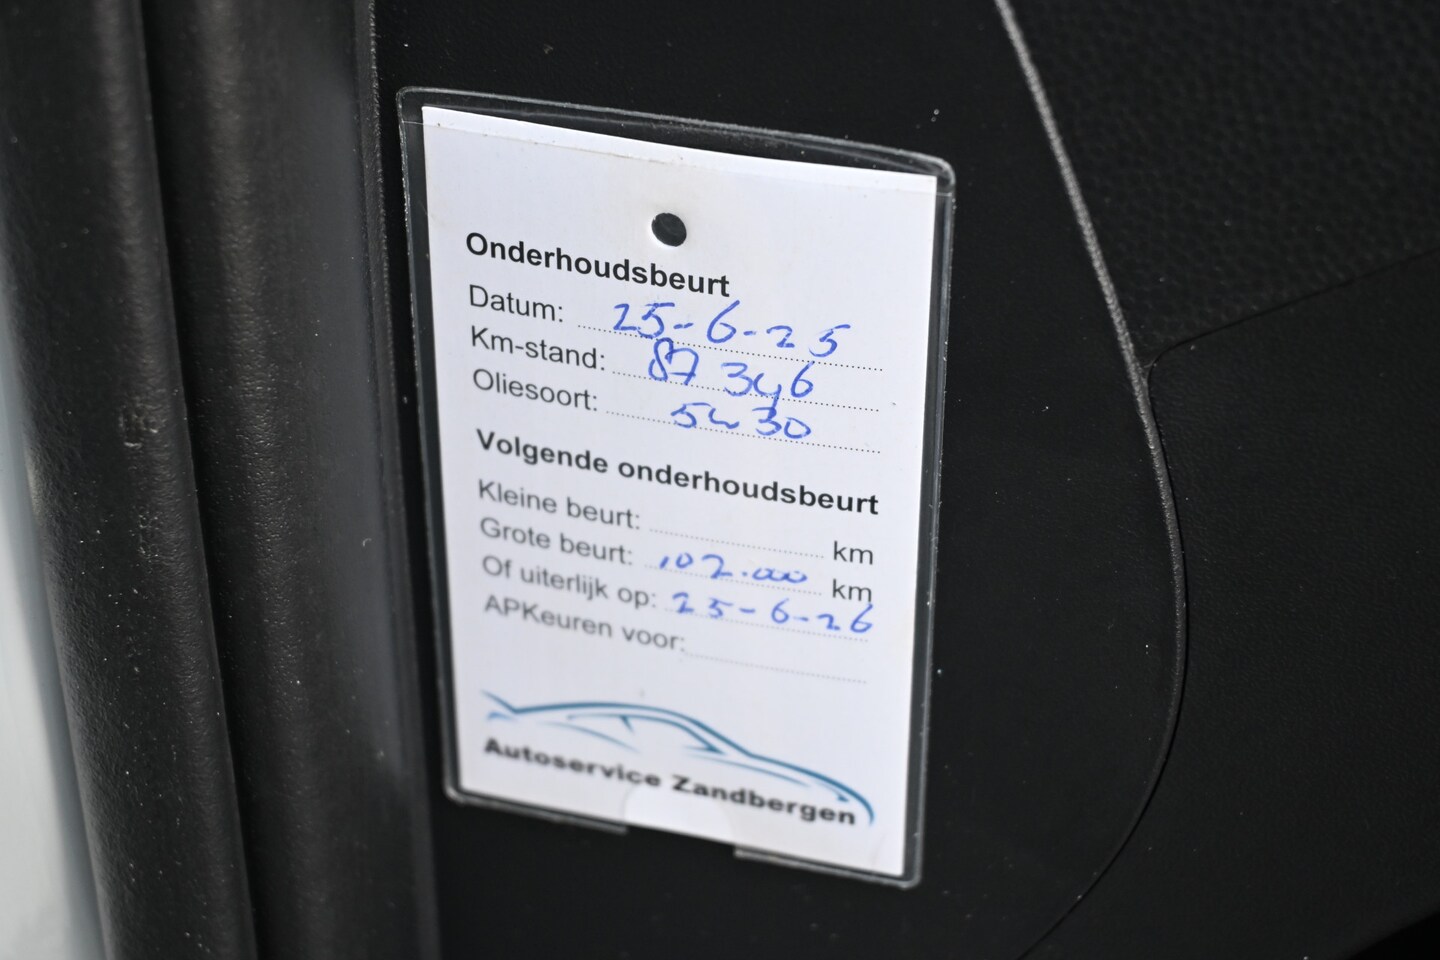 Onderhoudsbeurt
Datum: 25-6-25
Km-stand: 87 346
Oliesoort: 5w30
Volgende onderhoudsbeurt
Kleine beurt: km
Grote beurt: 102.000 km
Of uiterlijk op: 25-6-26
APKeuren voor:
Autoservice Zandbergen